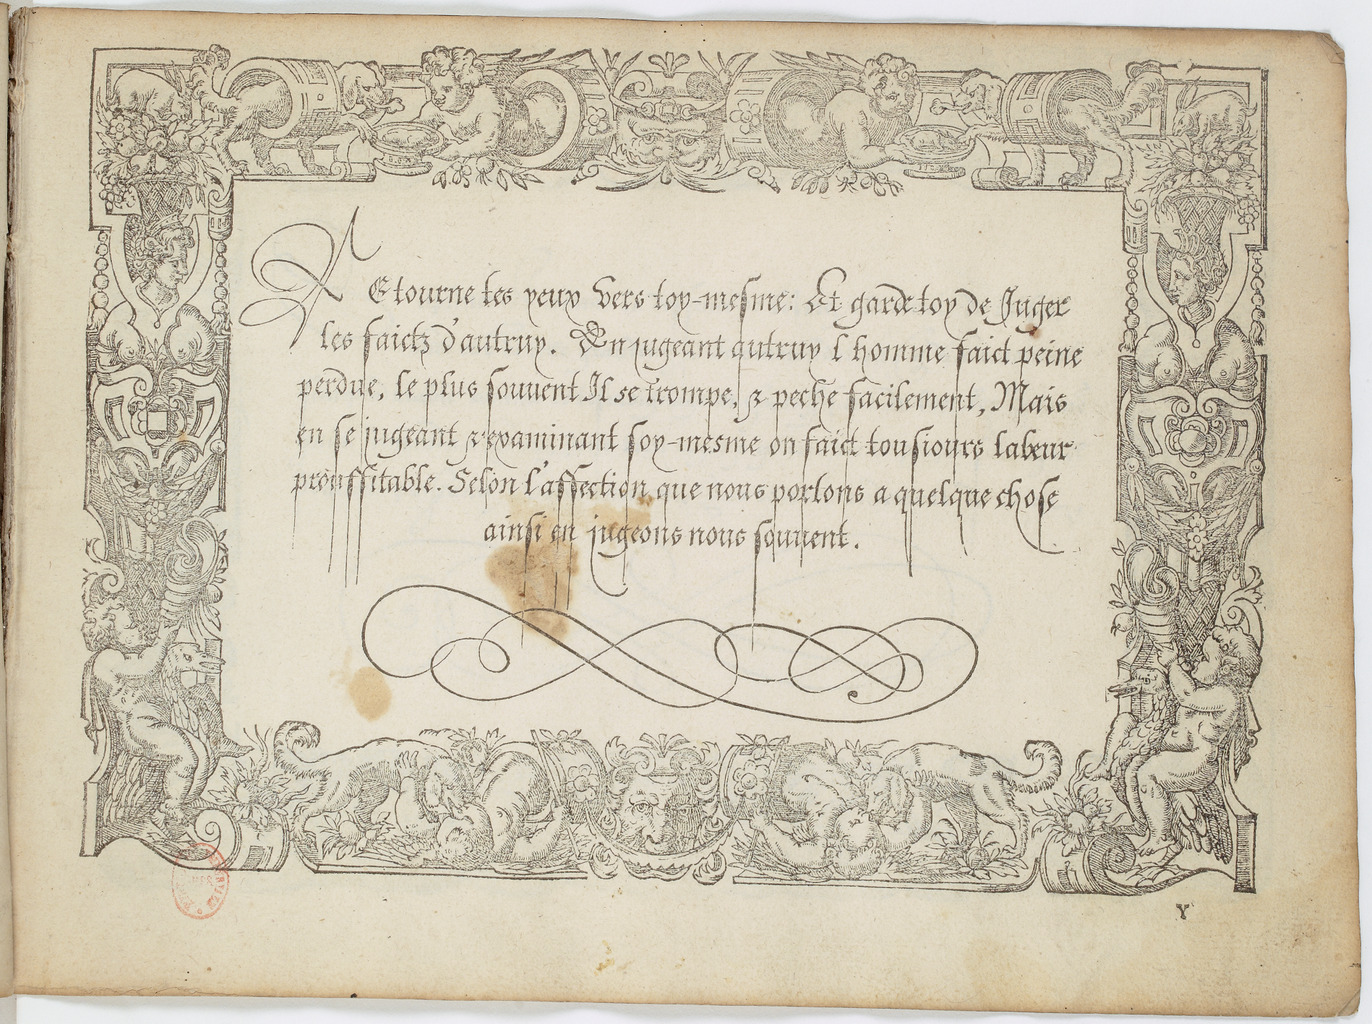 REtourne tes yeux vers toy-mesme: Et garde toy de Iuger
les faictz d'autruy. En jugeant autruy l'homme faict peine
perdue, le plus souvent Il se trompe, & peche facilement, Mais
en se jugeant & examinant soy-mesme on faict tousiours labeur
prouffitable. Selon l'affection que nous portons a quelque chose
ainsi en jugeons nous souvent.
Y